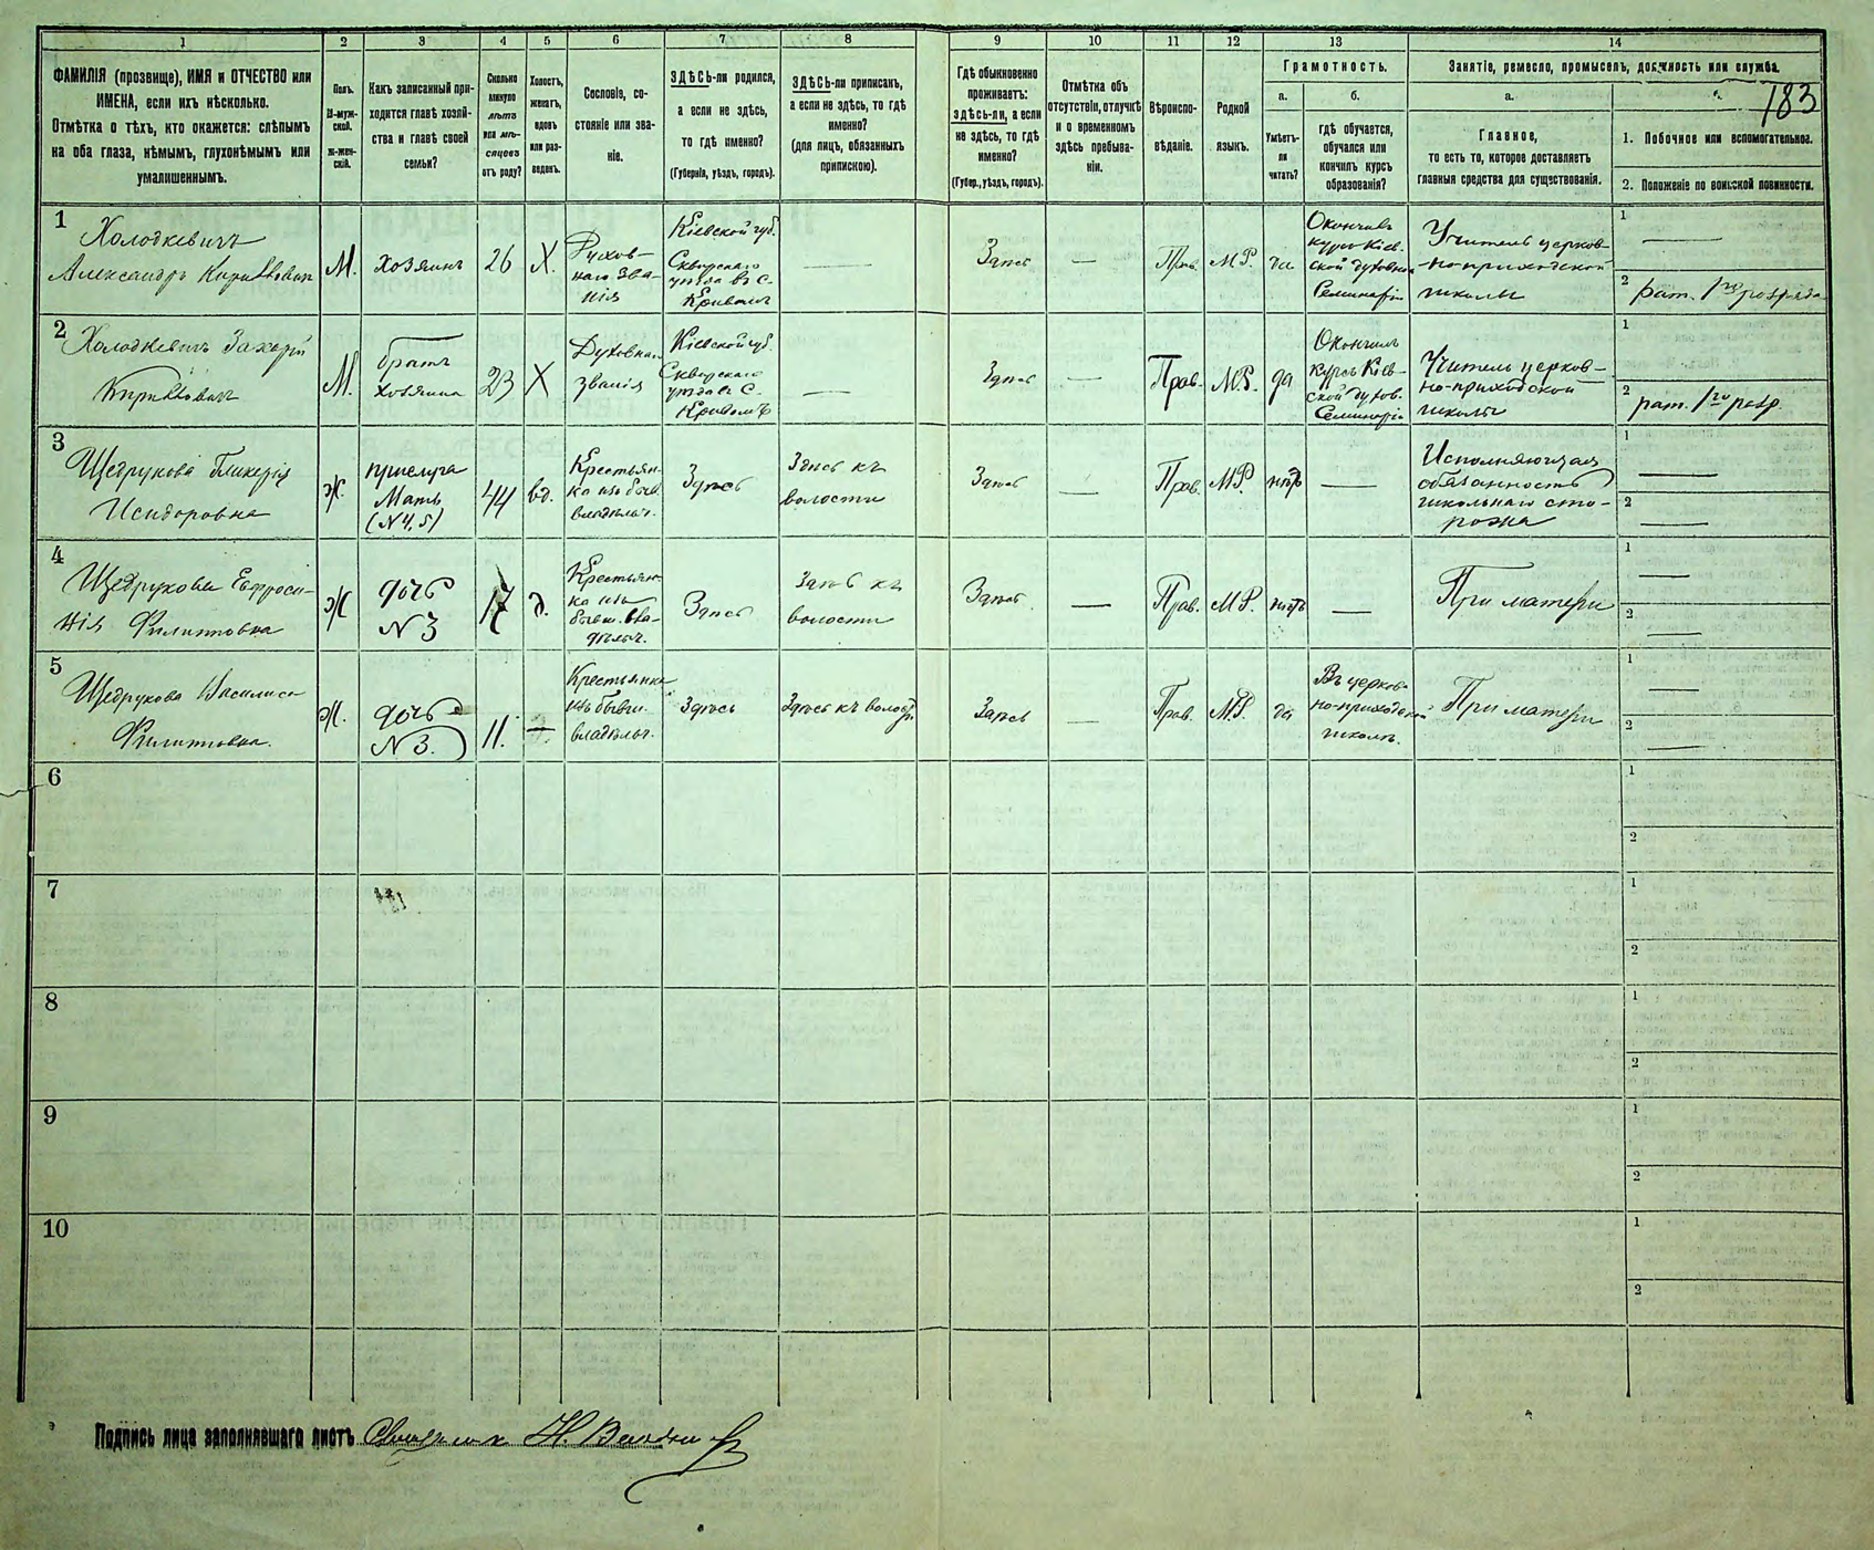 183
1 2 3 4 5 6 7 8 9 10 11 12 13 14
ФАМИЛІЯ (прозвище), ИМЯ и ОТЧЕСТВО или
ИМЕНА, если ихъ нѣсколько.
Отмѣтка о тѣхъ, кто окажется: слѣпымъ
на оба глаза, нѣмымъ, глухонѣмымъ или
умалишеннымъ.
Полъ.
М-муж-
ской.
ж-жен-
скій.
Какъ записанный при-
ходится главѣ хозяй-
ства и главѣ своей
семьи?
Сколько
минуло
лѣтъ
или мѣ-
сяцевъ
отъ роду?
Холостъ,
женатъ,
вдовъ
или раз-
веденъ.
Сословіе, со-
стояніе или зва-
ніе.
ЗДѢСЬ-ли родился,
а если не здѣсь,
то гдѣ именно?
(Губернія, уѣздъ, городъ).
ЗДѢСЬ-ли приписанъ,
а если не здѣсь, то гдѣ
именно?
(для лицъ, обязанныхъ
припискою).
Гдѣ обыкновенно
проживаетъ:
здѣсь-ли, а если
не здѣсь, то гдѣ
именно?
(Губер., уѣздъ, городъ).
Отмѣтка объ
отсутствіи, отлучкѣ
и о временномъ
здѣсь пребыва-
ніи.
Вѣроиспо-
вѣданіе.
Родной
языкъ.
Грамотность.
а.
Умѣетъ-
ли
читать?
б.
гдѣ обучается,
обучался или
кончилъ курсъ
образованія?
Занятіе, ремесло, промыселъ, должность или служба.
а.
Главное,
то есть то, которое доставляетъ
главныя средства для существованія.
1. Побочное или вспомогательное.
2. Положеніе по воинской повинности.
1
Холодкевичъ
Александръ Кирилловичъ
М.
Хозяинъ
26
Х.
Духов-
наго зва-
нія
Кіевской губ.
Сквирскаго
уѣзда въ с.
Кривомъ
—
Здѣсь
—
Прав.
М.Р.
да
Окончилъ
курсъ Кіев-
ской духовной
Семинаріи
Учитель церков-
но-приходской
школы
1
—
2
рат. 1го разряда
2
Холодкевичъ Захарій
Кирилловичъ
М.
братъ
хозяина
23
Х
Духовнаго
званія
Кіевской губ.
Сквирскаго
уѣзда въ с.
Кривомъ
—
Здѣсь
—
Прав.
М.Р.
да
Окончилъ
курсъ Кіев-
ской духов.
Семинаріи
Учитель церков-
но-приходской
школы
1
2
рат. 1го разр.
3
Щедрукова Гликерія
Исидоровна
Ж.
прислуга
Мать
(N 4, 5)
44
вд.
Крестьян-
ка изъ бывш.
владѣльч.
Здѣсь
Здѣсь къ
волости
Здѣсь
—
Прав.
М.Р.
нѣтъ
—
Исполняющая
обязанность
школьнаго сто-
рожа
1
—
2
—
4
Щедрукова Евфроси-
нія Филипповна
Ж
дочь
N 3
17
д.
Крестьян-
ка изъ
бывш. вла-
дѣльч.
Здѣсь
Здѣсь къ
волости
Здѣсь
—
Прав.
М.Р.
нѣтъ
—
При матери
1
—
2
—
5
Щедрукова Василиса
Филипповна.
Ж.
дочь
N 3.
11.
—
Крестьянка
изъ бывш.
владѣльч.
Здѣсь
Здѣсь къ волости
Здѣсь
—
Прав.
М.Р.
да
Въ церков-
но-приходской
школѣ.
При матери
1
—
2
—
6
1
2
7
1
2
8
1
2
9
1
2
10
1
2
Подпись лица заполнявшаго листъ